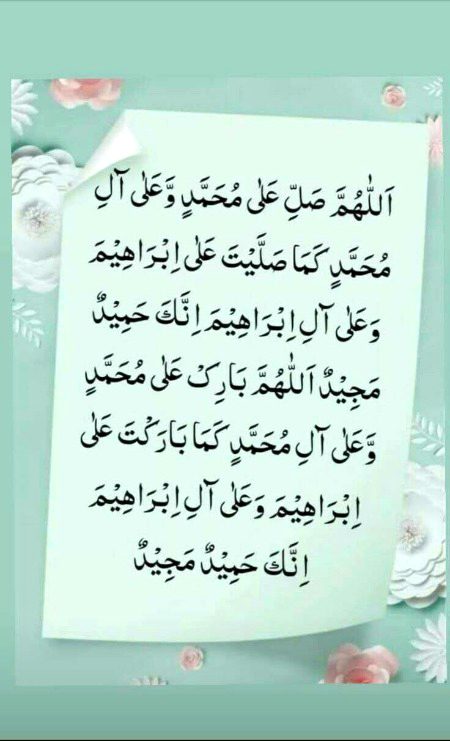 اَللّٰهُمَّ صَلِّ عَلٰى مُحَمَّدٍ وَّعَلٰى آلِ
مُحَمَّدٍ كَمَا صَلَّيْتَ عَلٰى اِبْرَاهِيْمَ
وَعَلٰى آلِ اِبْرَاهِيْمَ اِنَّكَ حَمِيْدٌ
مَجِيْدٌ اَللّٰهُمَّ بَارِكْ عَلٰى مُحَمَّدٍ
وَّعَلٰى آلِ مُحَمَّدٍ كَمَا بَارَكْتَ عَلٰى
اِبْرَاهِيْمَ وَعَلٰى آلِ اِبْرَاهِيْمَ
اِنَّكَ حَمِيْدٌ مَجِيْدٌ